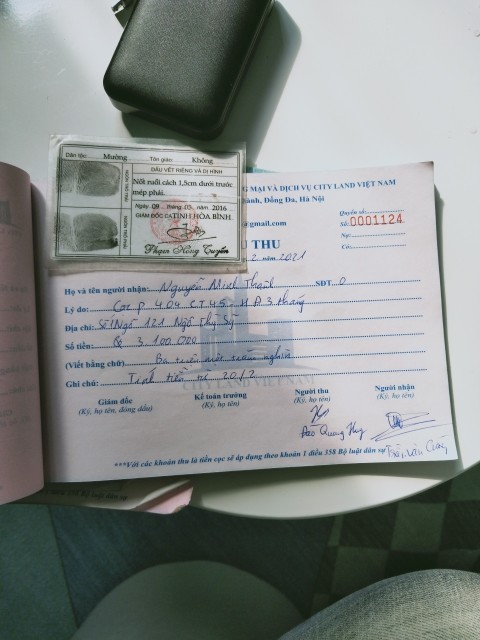 Dân tộc: Mường Tôn giáo: Không
DẤU VẾT RIÊNG VÀ DỊ HÌNH
Nốt ruồi cách 1,5cm dưới trước
mép phải.
Ngày 09 tháng 10 năm 2016
GIÁM ĐỐC CA TỈNH HÒA BÌNH
Phạm Hồng Tuyến
NGÓN TRỎ TRÁI
NGÓN TRỎ PHẢI
MẠI VÀ DỊCH VỤ CITY LAND VIỆT NAM
Đống Đa, Hà Nội
@gmail.com
Quyển số:
Số: 0001124
Nợ:
Có:
THU
2 năm 2021
Họ và tên người nhận: Nguyễn Minh Thành SĐT: 0
Lý do: Cọc P 404 3 tháng
Địa chỉ: Số 1 Ngõ 121 Ngô Thì Sỹ
Số tiền: 3.100.000
(Viết bằng chữ) Ba triệu một trăm nghìn
Ghi chú: Tính tiền từ 20/2
CITY LAND VIỆT NAM
Giám đốc Kế toán trưởng Người thu Người nhận
(Ký, họ tên, đóng dấu) (Ký, họ tên) (Ký, họ tên) (Ký, họ tên)
Đào Quang Huy
Trần Văn Cường
***Với các khoản thu là tiền cọc sẽ áp dụng theo khoản 1 điều 358 Bộ luật dân sự